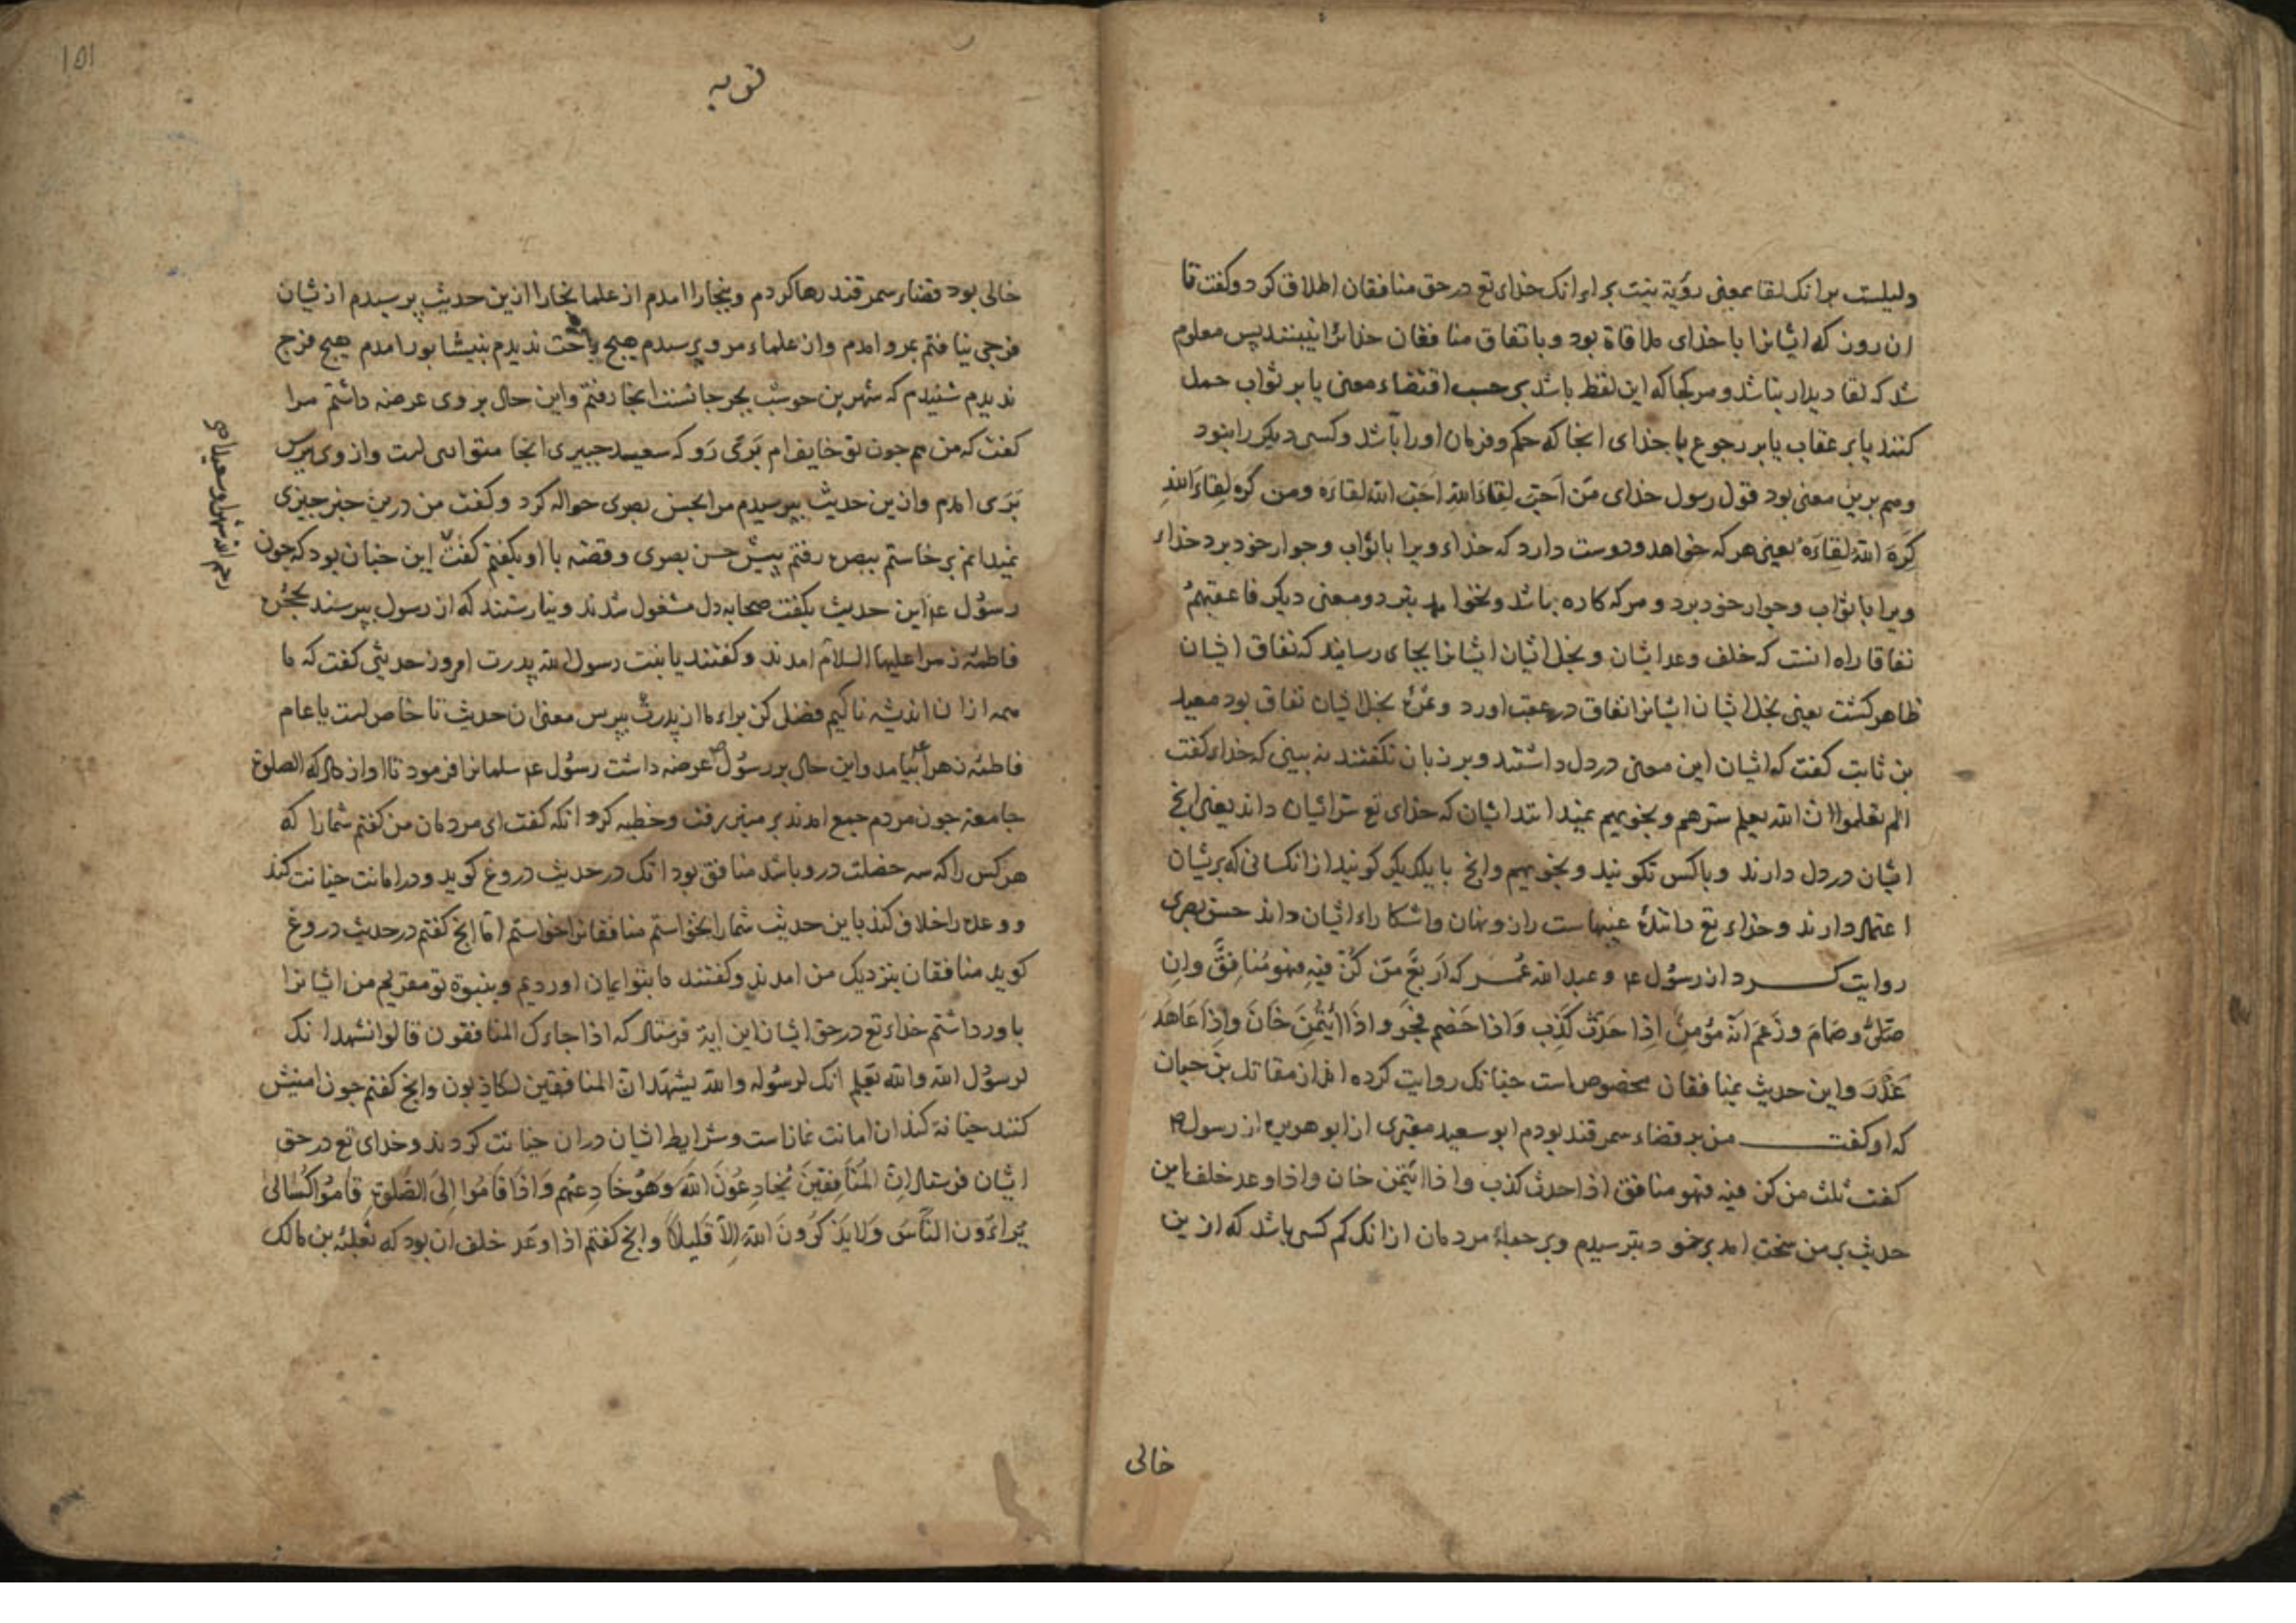 دلیلست برانک لقا بمعنی رؤیة نیت برای انک خدای تع در حق منافقان اطلاق کرد و کفت تا
ان روز که ایشانرا با خدای ملاقاة بود و باتفاق منافقان خدایرا نبینند پس معلوم
شد که لقا دیدار نباشد و هر کجا که این لفظ باشد بر حسب اقتضاء معنی یا بر ثواب حمل
کنند یا بر عقاب یا بر رجوع با خدای انجا که حکم و فرمان اورا باشد و کسی دیکر را نبود
و هم برین معنی بود قول رسول خدای مَن اَحَبَّ لِقاءَ الله اَحَبَّ الله لقاءَه ومن کَرِهَ لِقاءَ الله
کَرِهَ الله لِقاءَه یعنی هر که خواهد و دوست دارد که خداء ویرا با ثواب و جوار خود برد خداء
ویرا با ثواب و جوار خود برد و هر که کاره باشد و نخواهد نبرد و معنی دیکر فاعقبهمْ
نفاقا راه انست که خلف وعد ایشان و بخل ایشان ایشانرا بجای رسانید که نفاق ایشان
ظاهر کشت یعنی بخل ایشان ایشانرا نفاق در عقب اورد و بخل ایشان نفاق بود معبد
بن ثابت کفت که ایشان این معنی در دل داشتند و بر زبان نکفتند نه بینی که خداء کفت
الم یعلموا ان الله یعلم سرهم و نجویهم نمیدانند ایشان که خدای تع سر ایشان داند یعنی انچ
ایشان در دل دارند و با کس نکویند و نجویهم وانچ با یکدیکر کویند از انکسانی که بریشان
اعتماد دارند و خداء تع دانندهٔ غیبهاست راز و نهان و اشکاراء ایشان داند حسن بصری
روایت کرد از رسول ع و عبد الله عُمر که اَربَعٌ مَن کُنَّ فیهِ فهو مُنافِقٌ وان
صَلّی و صَامَ وزَعَمَ اَنّه مُؤمِنٌ اِذا حَدَّثَ کَذِبَ وَاذا خَصَم فَجَر و اذا ائتُمِنَ خَانَ واِذا عَاهَدَ
غَدَرَ و این حدیث بمنافقان مخصوص است چنانک روایت کرده اند از مقاتل بن حیان
که او کفت من بر قضاء سمرقند بودم ابو سعید مقبری از ابو هریره از رسول ص
کفت ثلث من کن فیه فهو منافق اذا حدث کذب و اذا ائتمن خان و اذا وعد خلف این
حدیث بر من سخت امد بر خود بترسیدم و بر جملهٔ مردمان از انک کم کسی باشد که ازین
خالی
توبه
۱۵۱
خالی بود قضاء سمرقند رها کردم و ببخارا امدم از علما بخارا ازین حدیث پرسیدم از یشان
فرجی نیافتم بمرو امدم و از علماء مرو پرسیدم هیچ راحت ندیدم بنیشابور امدم هیچ فرج
ندیدم شنیدم که شهر بن حوشب بجرجانست انجا رفتم و این حال بر وی عرضه داشتم مرا
کفت که من هم چون تو خایف ام بَری رَو که سعید جبیر انجا متواری است و از وی بپرس
بَری امدم و ازین حدیث بپرسیدم مرا بحسن بصری حواله کرد و کفت من درین خبر چیزی
نمیدانم برخاستم ببصره رفتم پیش حسن بصری و قصه با او بکفتم کفت این چنان بود که چون
رسُول ع این حدیث بکفت صحابه دل مشغول شدند و نیارستند که از رسول بپرسند
فاطمهٔ زهرا علیها السلام امدند و کفتند یا بنت رسول الله پدرت امروز حدیثی کفت که ما
همه ازان اندیشه ناکیم فضل کن براء ما از پدرت بپرس معنی ان حدیث تا خاص است یا عام
فاطمهٔ زهرا بیامد و این حال بر رسُول عرضه داشت رسُول ع سلمانرا فرمود تا اواز داد که الصلوة
جامعة چون مردم جمع امدند بر منبر رفت و خطبه کرد انکه کفت ای مردمان من کفتم شمارا که
هر کس را که سه خصلت درو باشد منافق بود انک در حدیث دروغ کوید و در امانت خیانت کند
و وعده را خلاف کند باین حدیث شمارا نخواستم منافقانرا خواستم اما انچ کفتم در حدیث دروغ
کوید منافقان بنزدیک من امدند و کفتند ما بتو ایمان اوردیم و بنبوة تو مقریم من ایشانرا
باور داشتم خداء تع در حق ایشان این ایة فرستاد که اذا جاءک المنافقون قالوا نشهد انک
لرسُول الله والله یَعلم انک لرسُوله والله یشهد ان المنافقین لکاذبون وانچ کفتم چون امینش
کنند خیانة کند ان امانت نمازاست و شرایط ایشان دران خیانت کردند و خدای تع در حق
ایشان فرستاد انّ المُنافِقینَ یُخادِعُونَ اللهَ وَهُوَ خادِعُهُم وَاذا قامُوا اِلیَ الصَّلوةِ قامُوا کُسَالی
یُراءُون النّاسَ وَلا یَذکُرُونَ اللهَ اِلّا قَلیلاً وانچ کفتم اذا وعد خلف ان بود که ثعلبه بن مالک